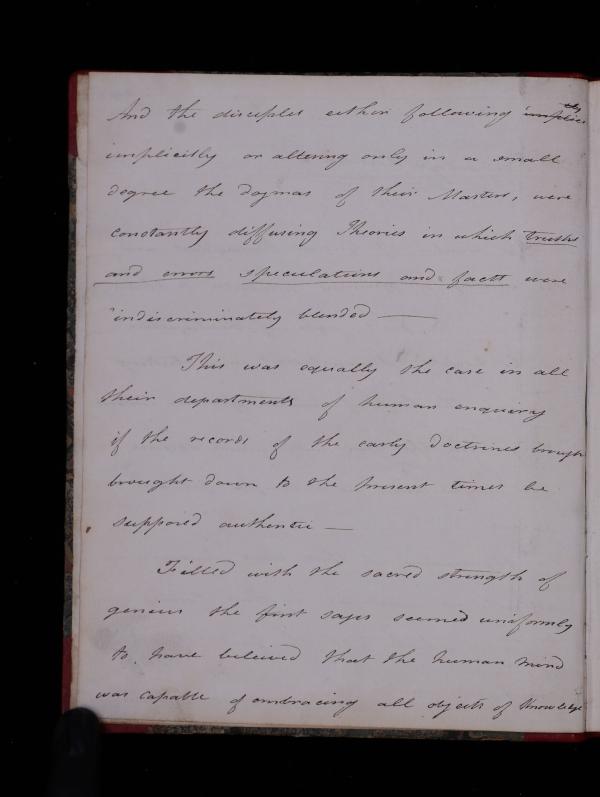 And the disciples either following implicitly
implicitly or altering only in a small
degree the dogmas of their Masters, were
constantly diffusing Theories in which truths
and errors speculations and facts were
indiscriminately blended —
This was equally the case in all
their departments of human enquiry
if the records of the early doctrines brought
brought down to the present times be
supposed authentic —
Filled with the sacred strength of
genius the first sages seemed uniformly
to have beleived that the human mind
was capable of embracing all objects of knowledge